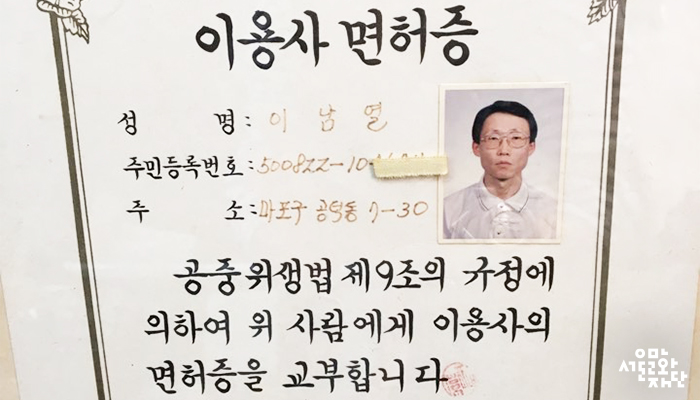 이용사 면허증
성 명: 이 남 열
주민등록번호: 500822-10
주 소: 마포구 공덕동 7-30
공중위생법 제9조의 규정에
의하여 위 사람에게 이용사의
면허증을 교부합니다
서울문화재단